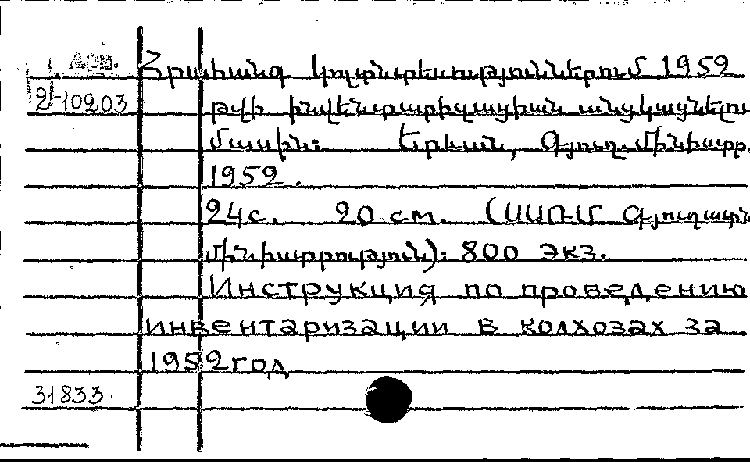 1. Арм.
2-10203
Հրահանգ կոլտնտեսություններում 1952
թվի ինվենտարիզացիան անցկացնելու
մասին։ Երևան, Գյուղ. մինիստր.
1952.
24с. 20 см. (ՍՍՌՄ Գյուղատն
մինիստրություն)։ 800 экз.
Инструкция по проведению
инвентаризации в колхозах за
1952 год
31833.